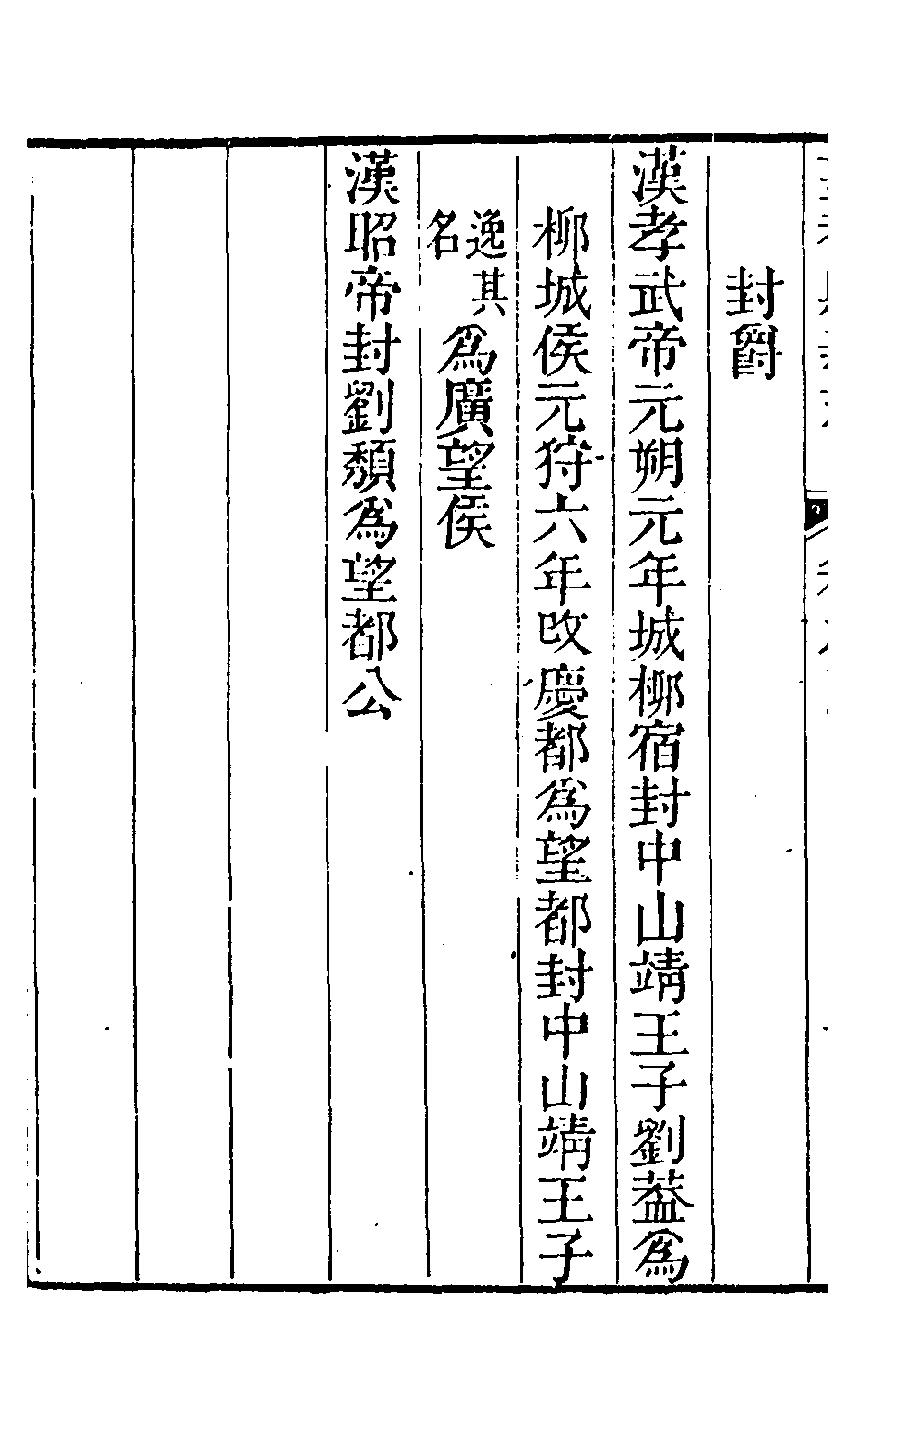 封爵
漢孝武帝元朔元年城柳宿封中山靖王子劉葢爲
柳城侯元狩六年改慶都爲望都封中山靖王子
逸其名爲廣望侯
漢昭帝封劉頽爲望都公